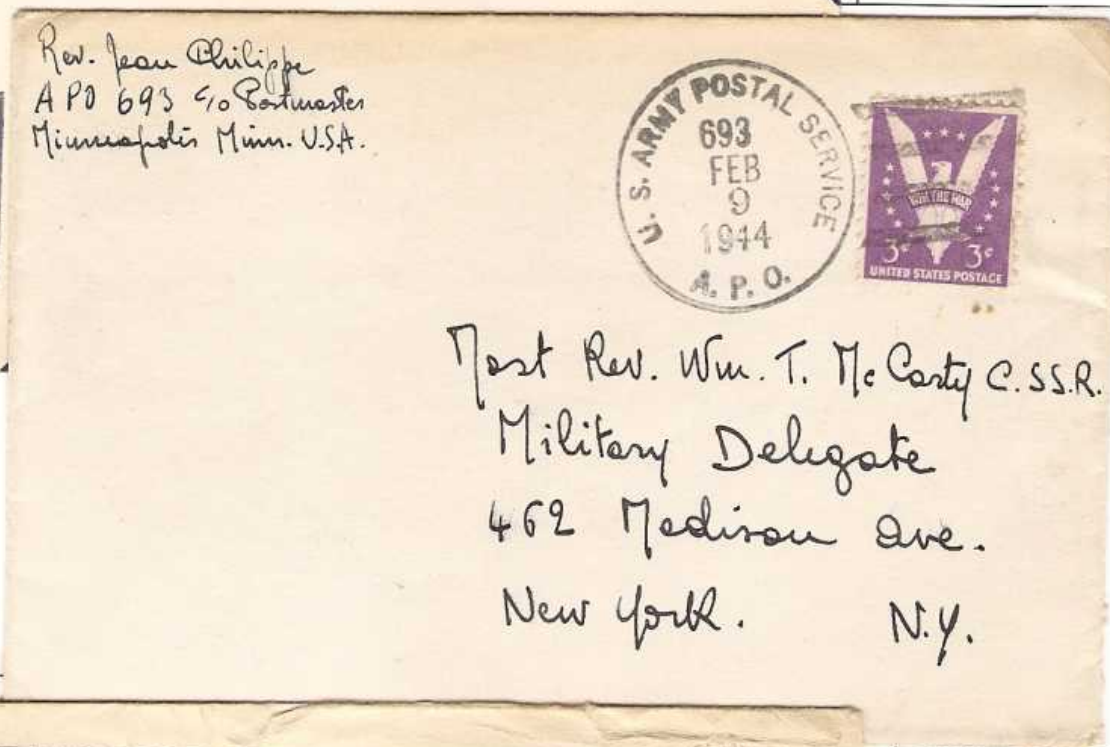 Rev. Jean Philippe
APO 693 c/o Postmaster
Minneapolis Minn. U.S.A.
U. S. ARMY POSTAL SERVICE
693
FEB
9
1944
A. P. O.
WIN THE WAR
3¢ 3¢
UNITED STATES POSTAGE
Most Rev. Wm. T. McCarty C.SS.R.
Military Delegate
462 Madison Ave.
New York. N.Y.